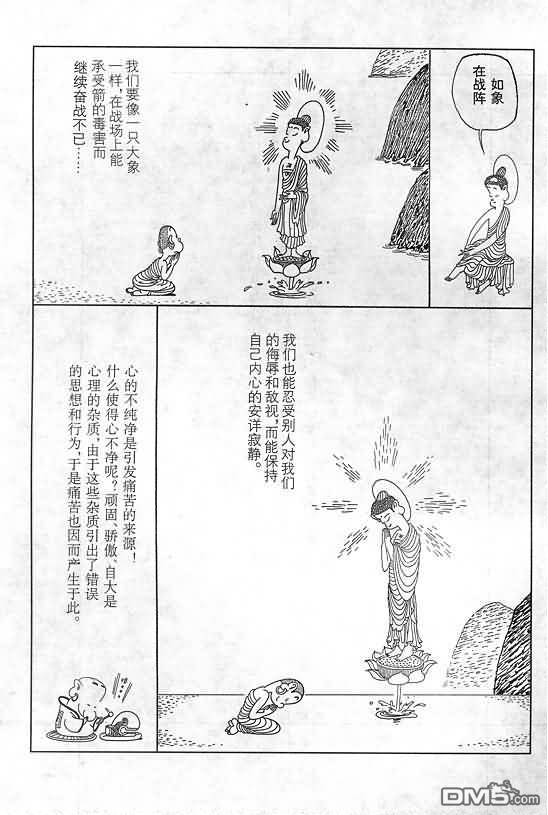 如象
在战阵
我们要像一只大象
一样，在战场上能
承受箭的毒害而
继续奋战不已……
我们也能忍受别人对我们
的侮辱和敌视，而能保持
自己内心的安详寂静。
心的不纯净是引发痛苦的来源！
什么使得心不净呢？顽固、骄傲、自大是
心理的杂质，由于这些杂质引出了错误
的思想和行为，于是痛苦也因而产生于此。
DM5.com